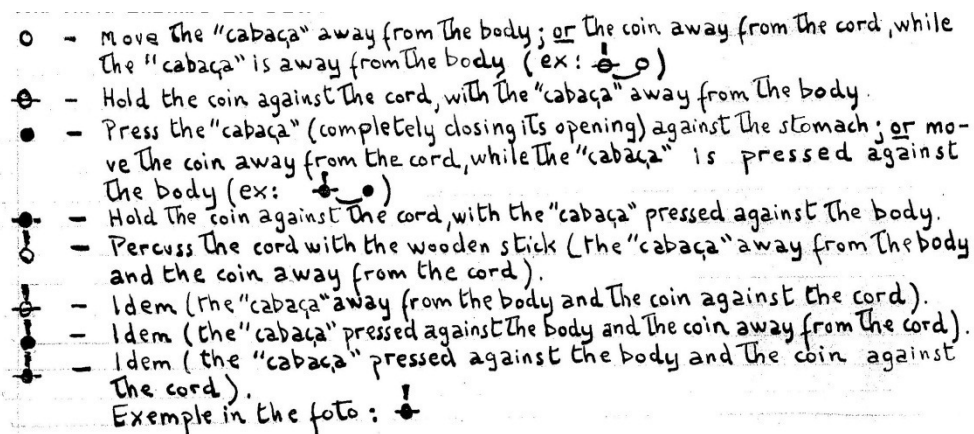 - Move the "cabaça" away from the body; or the coin away from the cord, while
the "cabaça" is away from the body (ex: )
- Hold the coin against the cord, with the "cabaça" away from the body.
- Press the "cabaça" (completely closing its opening) against the stomach; or mo-
ve the coin away from the cord, while the "cabaça" is pressed against
the body (ex: )
- Hold the coin against the cord, with the "cabaça" pressed against the body.
- Percuss the cord with the wooden stick (the "cabaça" away from the body
and the coin away from the cord).
- Idem (the "cabaça" away from the body and the coin against the cord).
- Idem (the "cabaça" pressed against the body and the coin away from the cord).
- Idem (the "cabaça" pressed against the body and the coin against
the cord).
Exemple in the foto: